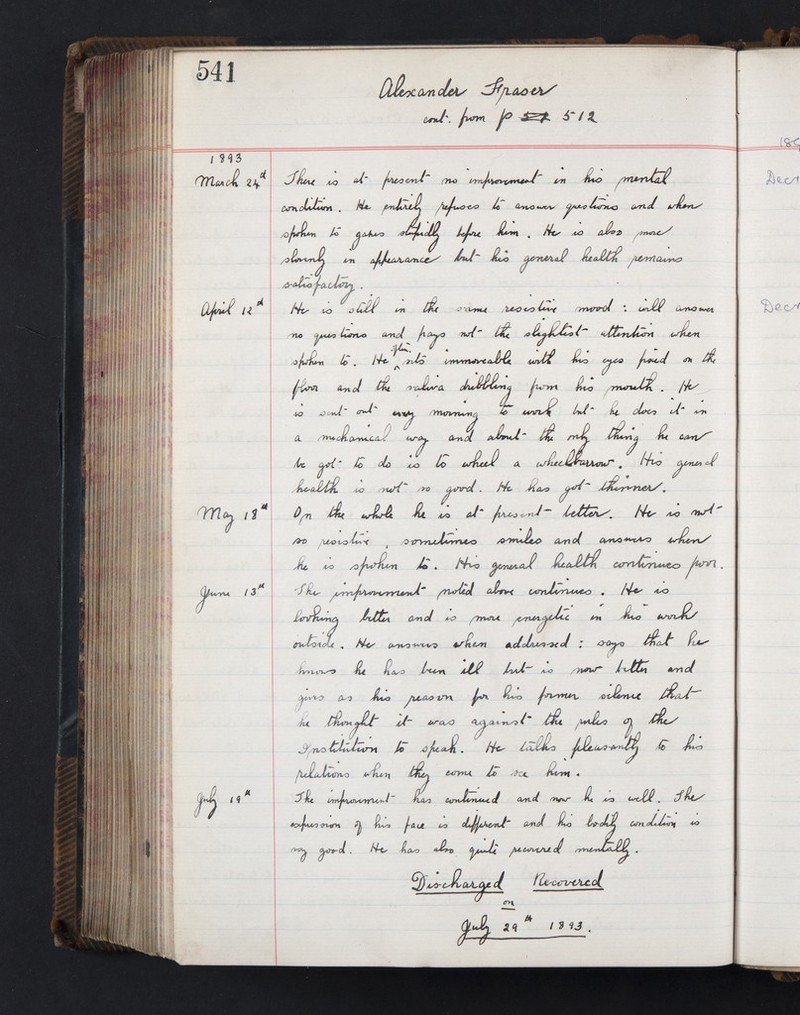 541
Alexander Fraser
cont. from p 512
1893
March 24th There is at present no improvement in his mental
condition. He entirely refuses to answer questions and when
spoken to gazes stupidly before him. He is also more
slovenly in appearance but his general health remains
satisfactory.
April 12th He is still in the same resistive mood: will answer
no questions and pays not the slightest attention when
spoken to. He often sits immoveable with his eyes fixed on the
floor and the saliva dribbling from his mouth. He
is sent out every morning to work but he does it in
a mechanical way and about the only thing he can
be got to do is to wheel a wheelbarrow. His general
health is not so good. He has got thinner.
May 18th On the whole he is at present better. He is not
so resistive, sometimes smiles and answers when
he is spoken to. His general health continues poor.
June 13th The improvement noted above continues. He is
looking better and is more energetic in his work
outside. He answers when addressed: says that he
knows he has been ill but is now better and
gives as his reason for his former silence that
he thought it was against the rules of the
Institution to speak. He talks pleasantly to his
relations when they come to see him.
July 19th The improvement has continued and now he is well. The
expression of his face is different and his bodily condition is
very good. He has also quite recovered mentally.
Discharged Recovered
on
July 29th 1893.
Decr
Decr